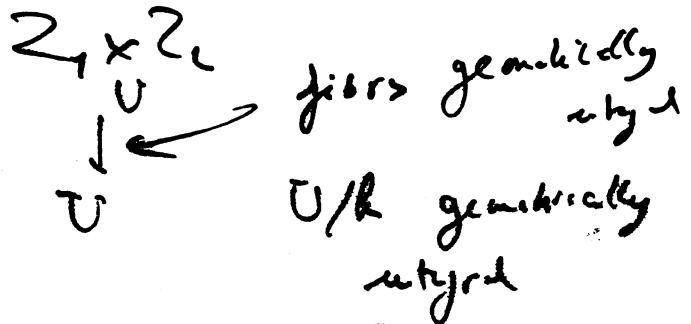 Z₁ × Z₂ fibres geometrically
U integral
↓
U U/k geometrically
integral